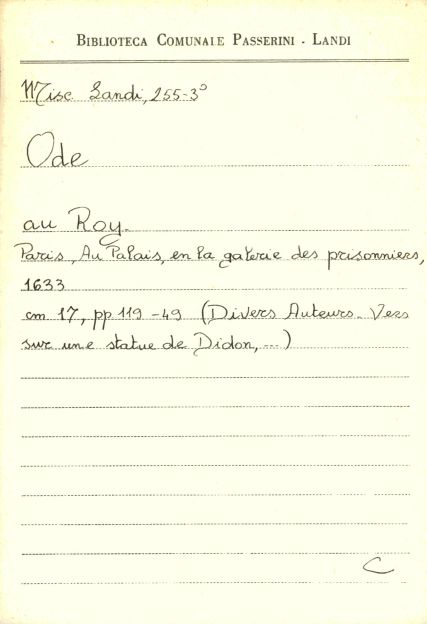 BIBLIOTECA COMUNALE PASSERINI - LANDI
Misc Landi, 255-3°
Ode
au Roy.
Paris, Au Palais, en la galerie des prisonniers,
1633
cm 17, pp 119-49 (Divers Auteurs. Vers
sur une statue de Didon, ...)
C